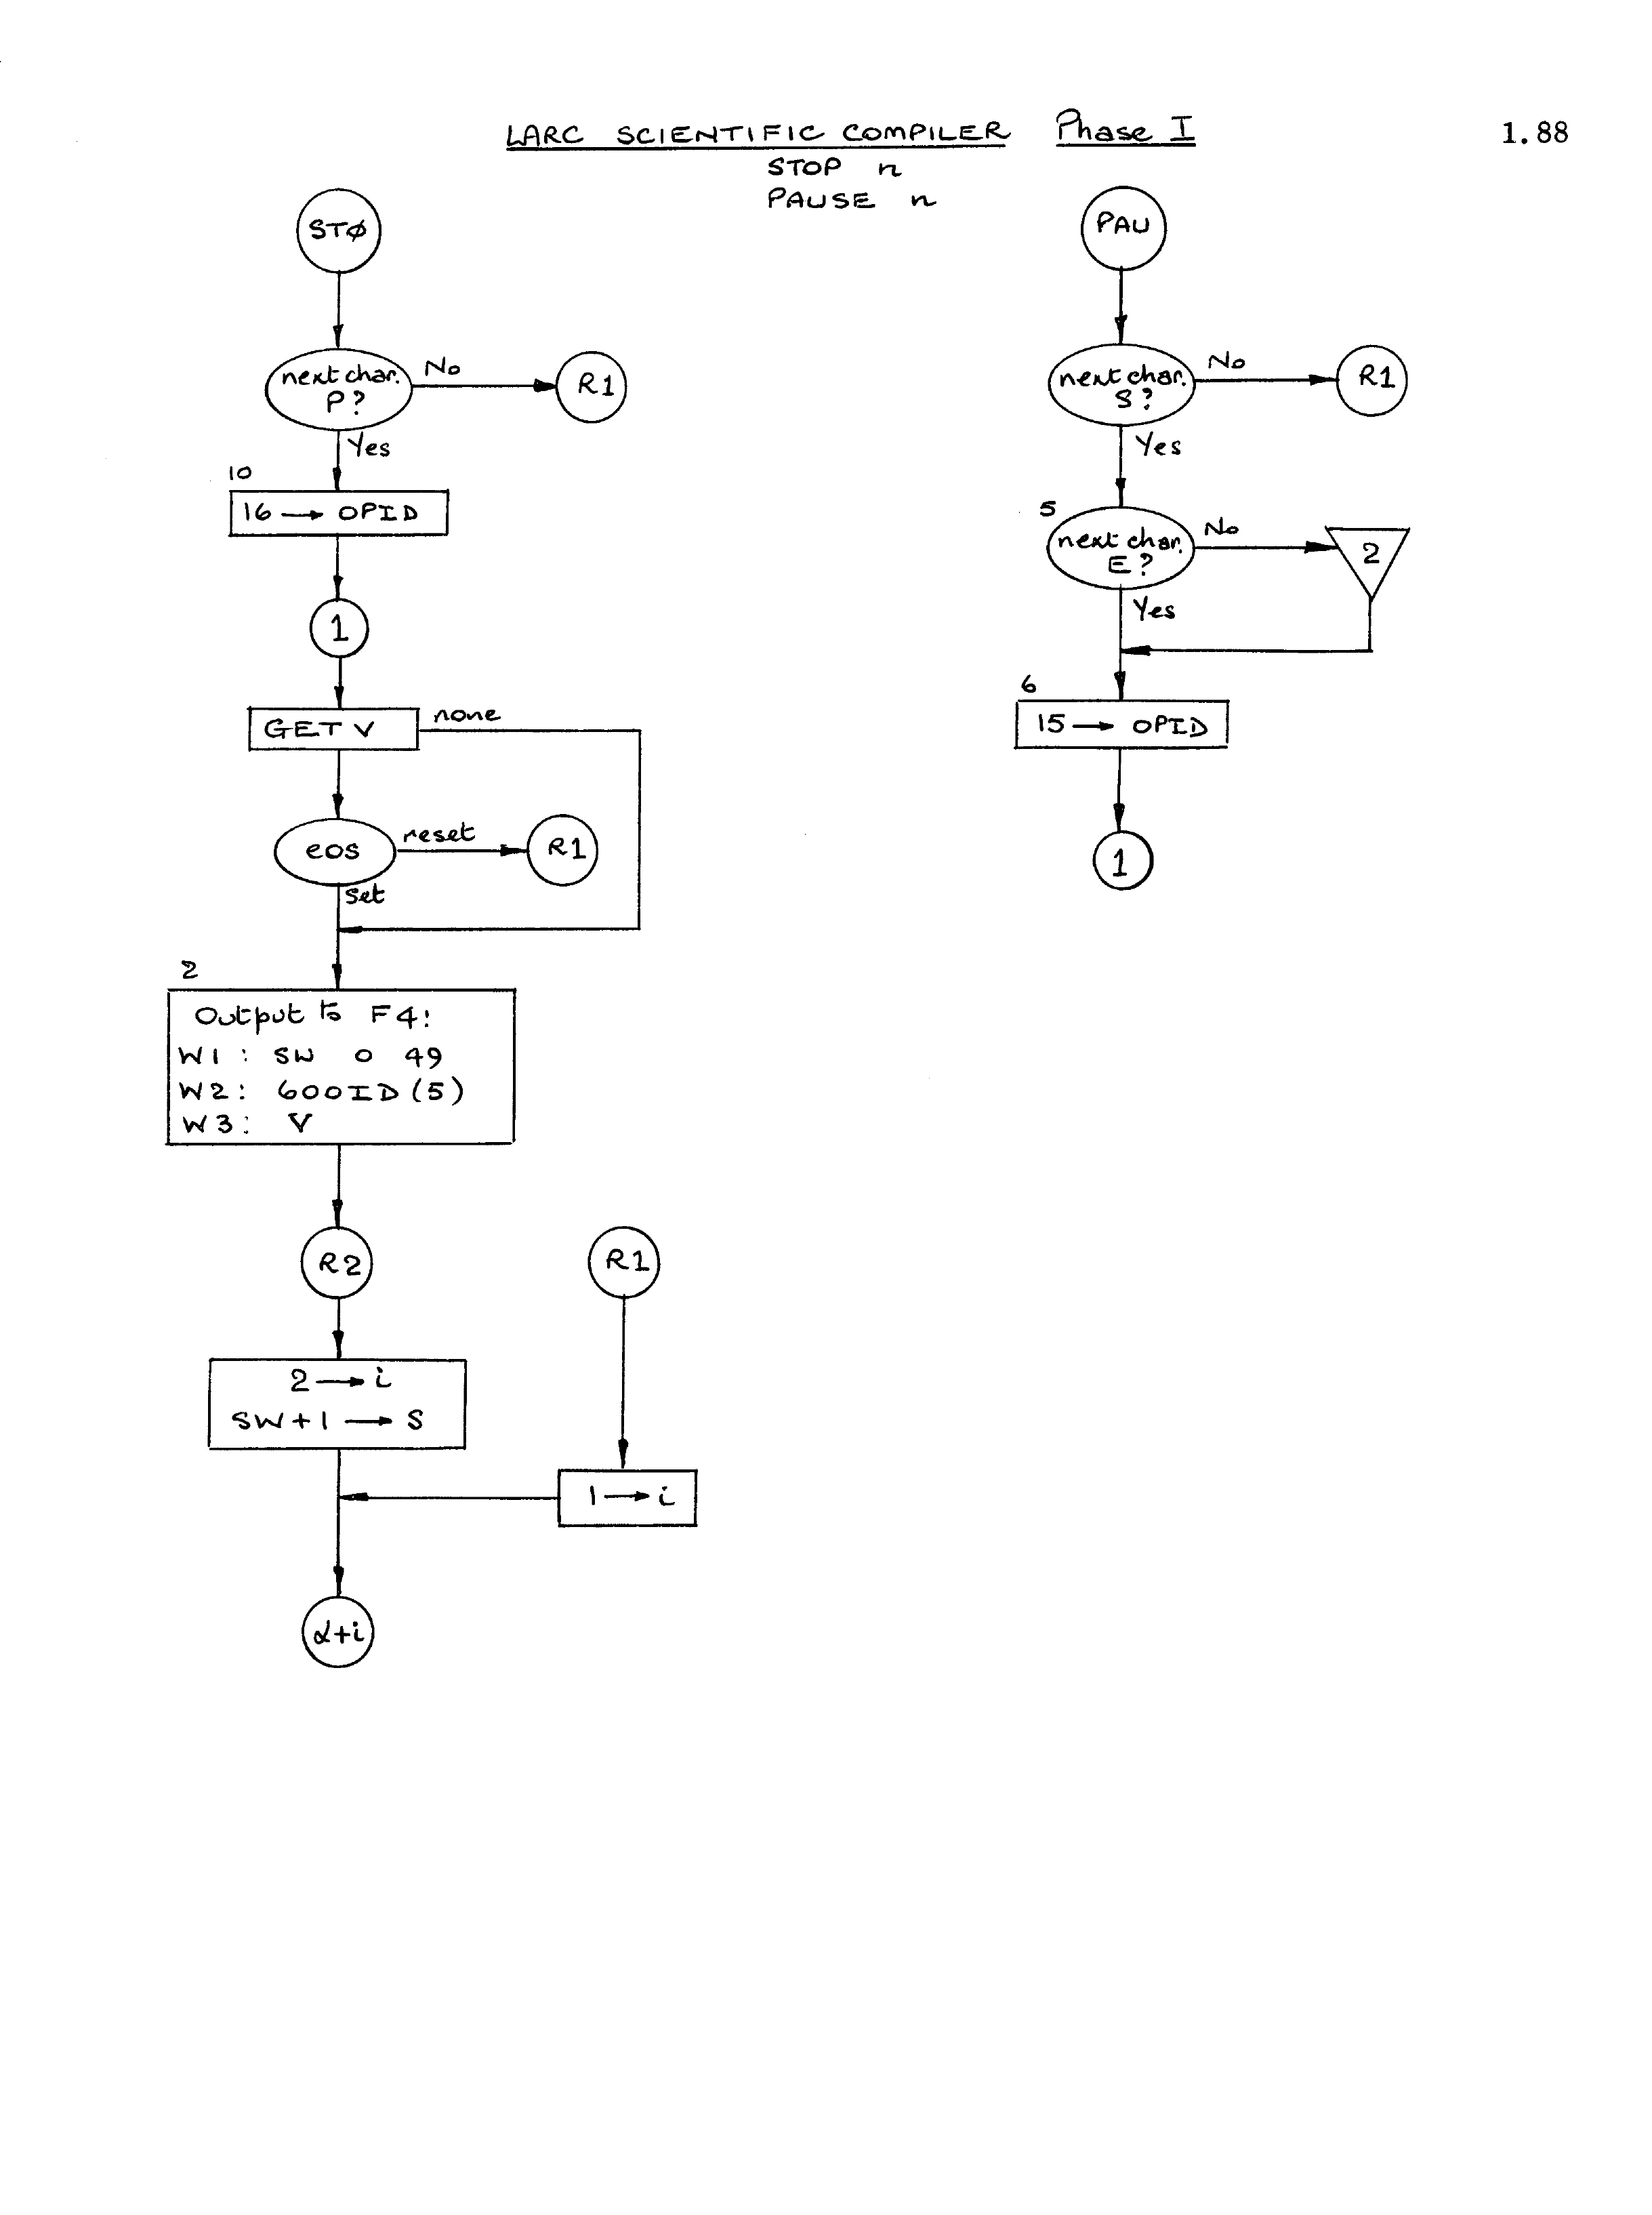 LARC SCIENTIFIC COMPILER Phase I
1.88
STOP n
PAUSE n
STØ
next char.
P?
No
R1
Yes
10
16 → OPID
1
GET V
none
eos
reset
R1
set
2
Output to F4:
W1: SW 0 49
W2: 600ID(5)
W3: V
R2
2 → i
SW+1 → S
R1
1 → i
α+i
PAU
next char.
S?
No
R1
Yes
5
next char.
E?
No
2
Yes
6
15 → OPID
1